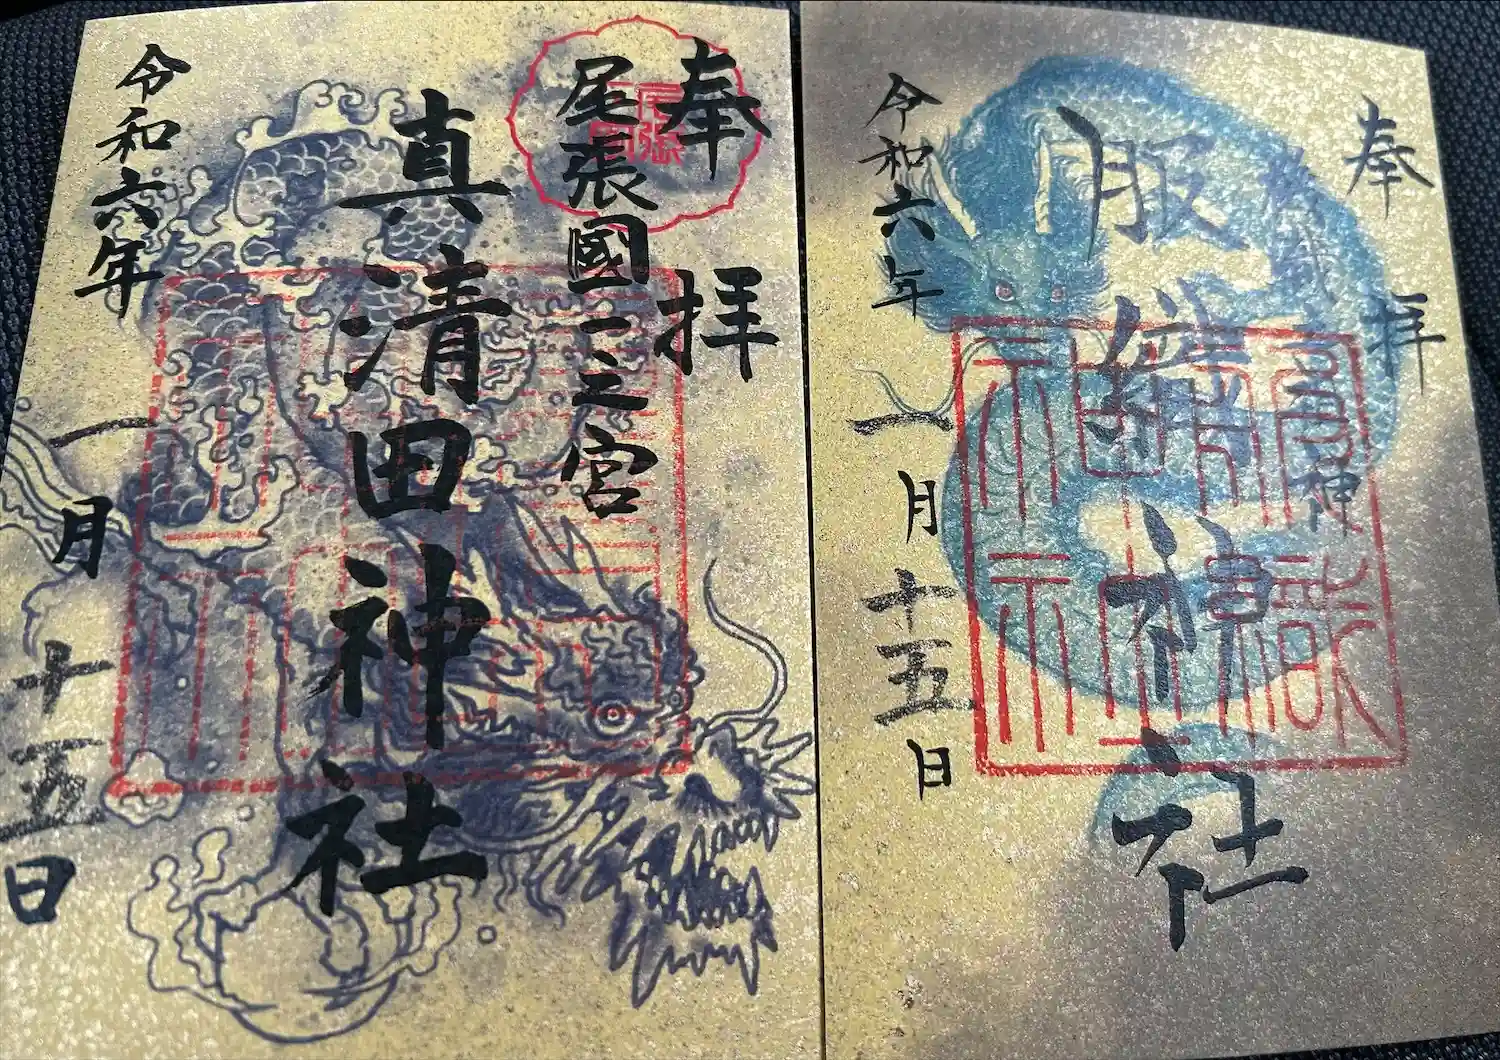 奉拝
尾張國一之宮
真清田神社
令和六年
一月十五日
奉拝
服織神社
令和六年
一月十五日